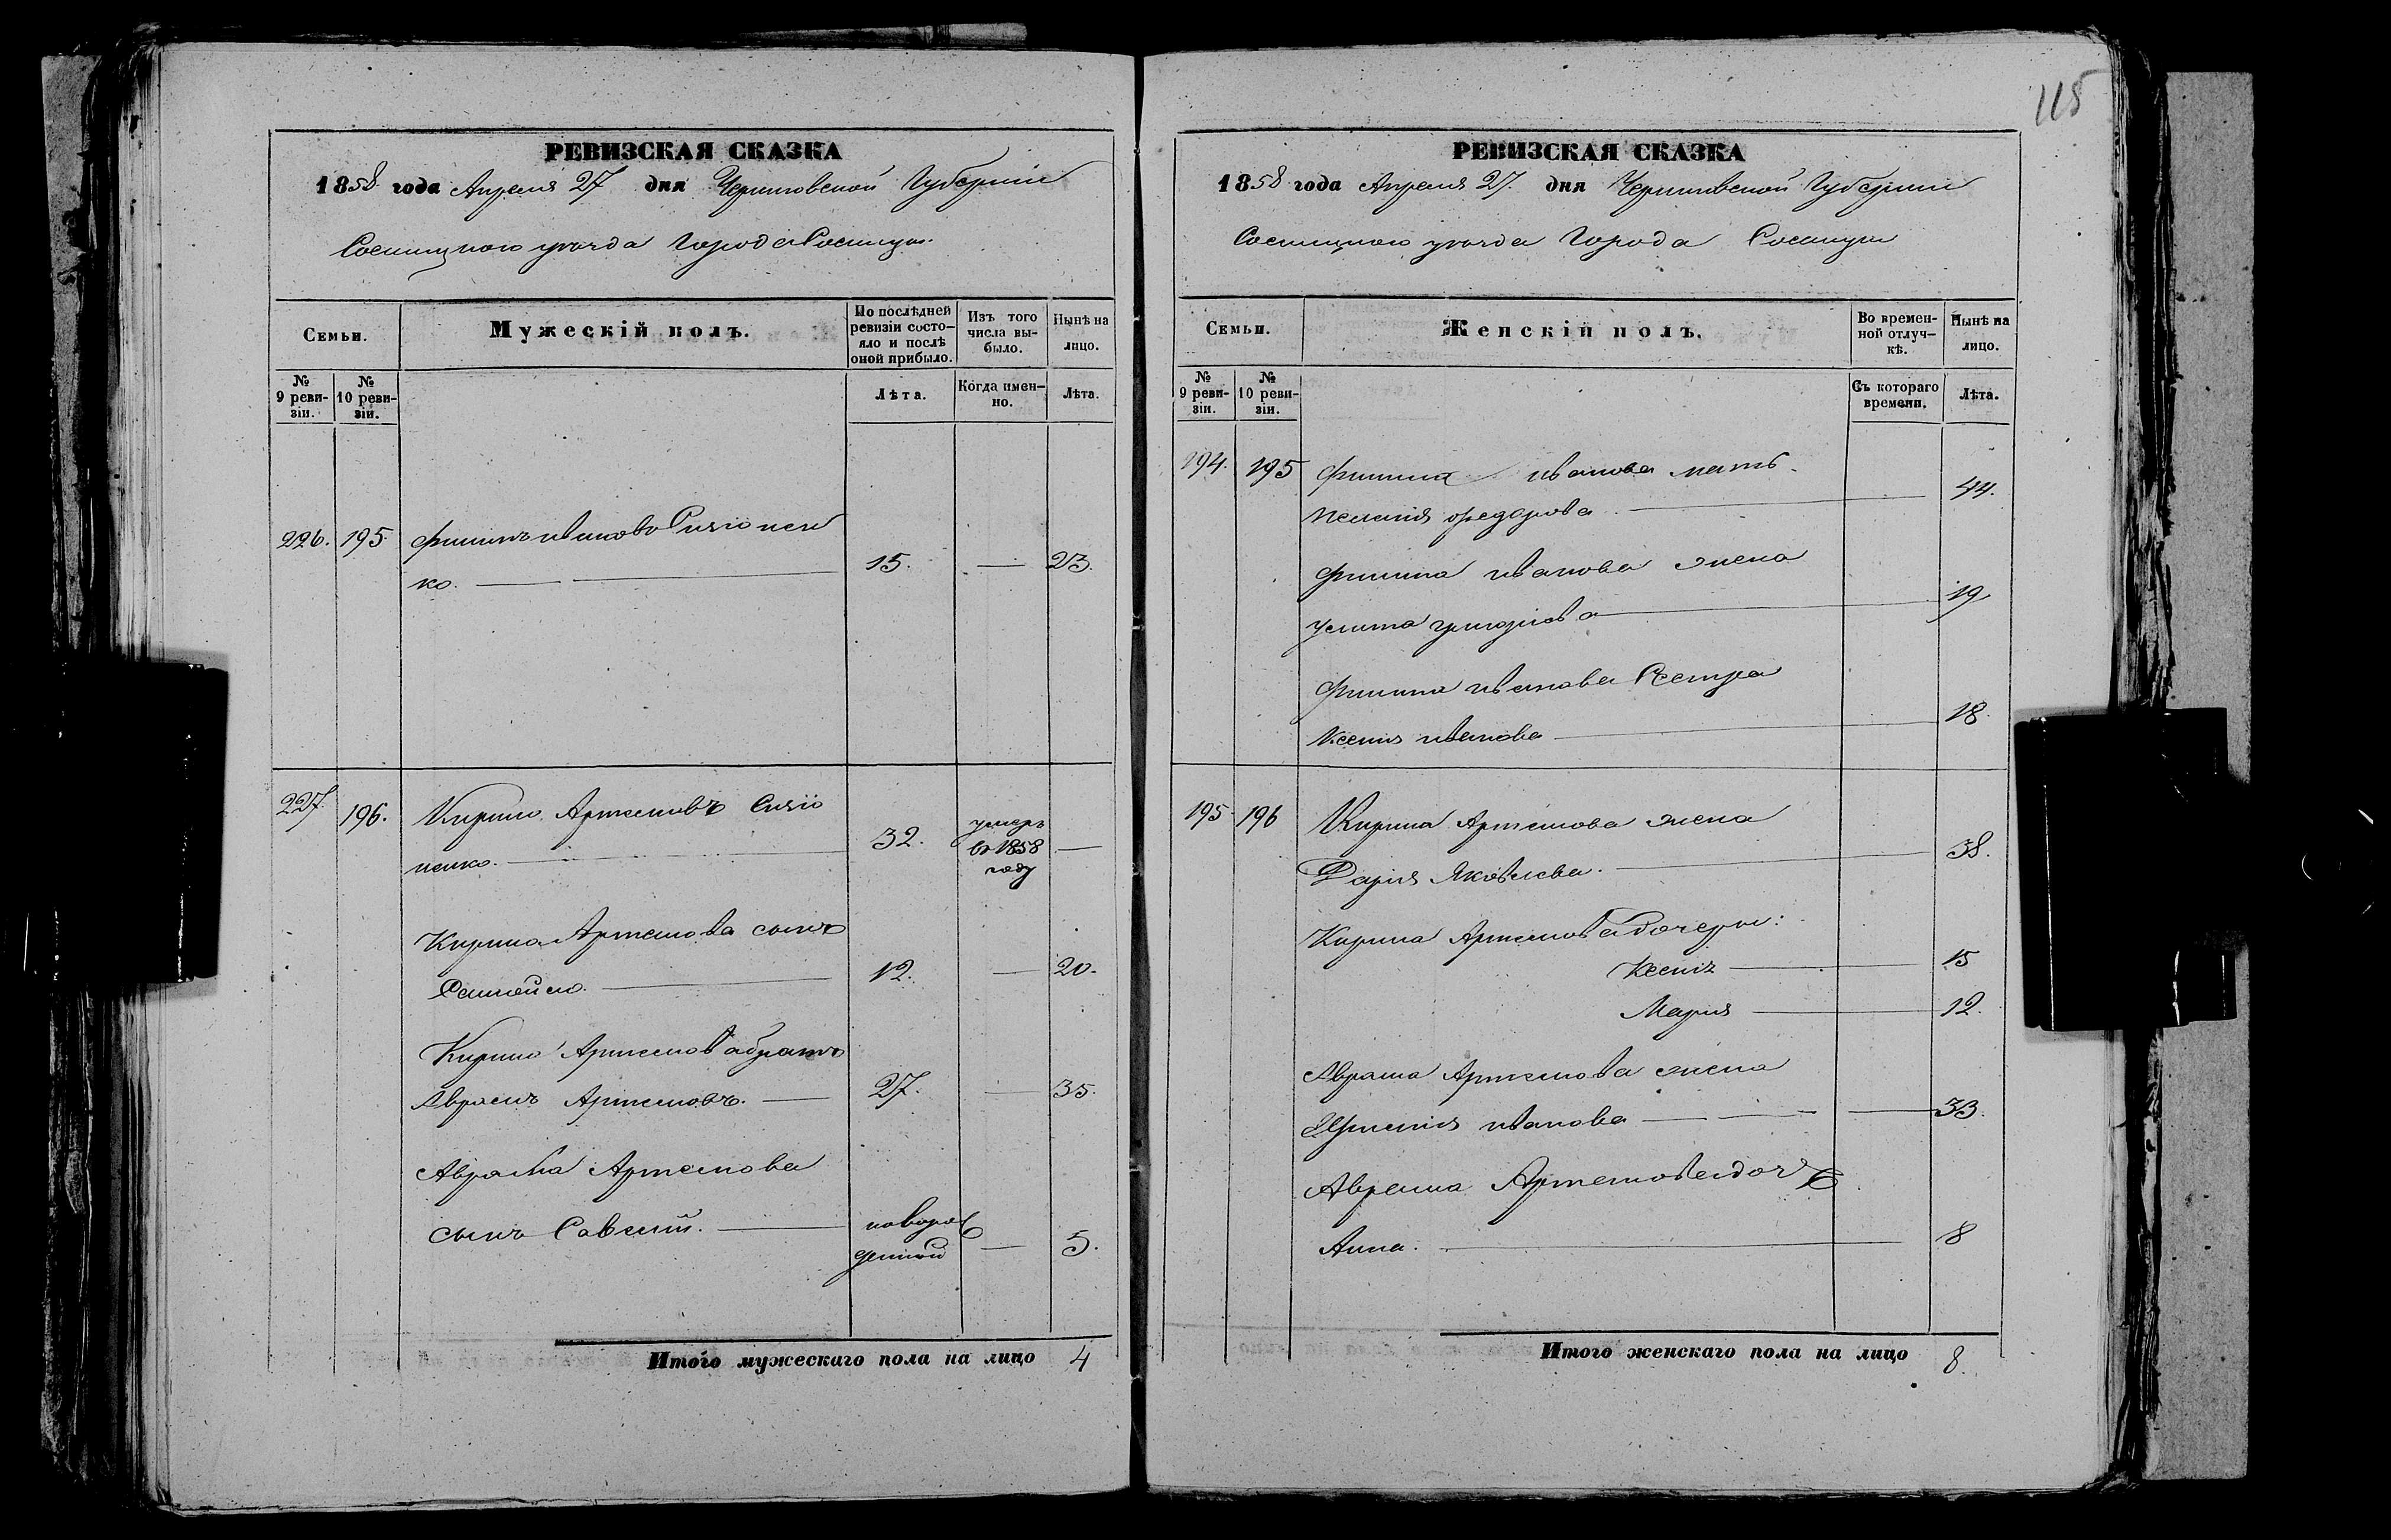 115
РЕВИЗСКАЯ СКАЗКА
1858 года Апреля 27 дня Черниговской Губернии
Сосницкого уезда Города Сосницы.
Семьи.
Мужескій полъ.
По послѣдней ревизіи состо-
яло и послѣ
оной прибыло.
Изъ того
числа вы-
было.
Нынѣ на
лицо.
№
9 реви-
зіи.
№
10 реви-
зіи.
Лѣта.
Когда имен-
но.
Лѣта.
226. 195. Филипъ ивановъ
ко. 15. — 23.
227. 196. Кирило Артемовъ
ненко. 32. умеръ
въ 1858
году —
Кирила Артемова сынъ
12. — 20.
Кирила Артемова братъ
Аврамъ Артемовъ. 27. — 35.
Аврама Артемова
сынъ Савелий. новорож
денный — 5.
Итого мужескаго пола на лицо 4
РЕВИЗСКАЯ СКАЗКА
1858 года Апреля 27. дня Черниговской Губернии
Сосницкого уезда Города Сосницы
Семьи.
Женскій полъ.
Во времен-
ной отлуч-
кѣ.
Нынѣ на
лицо.
№
9 реви-
зіи.
№
10 реви-
зіи.
Съ котораго
времени.
Лѣта.
194. 195 Филипа иванова мать
федорова. 44.
Филипа иванова жена
Улита григорьева 19
Филипа иванова Сестра
Ксения иванова 18.
195 196 Кирила Артемова жена
Дария Яковлева. 38.
Кирила Артемова дочери:
Ксения 15
Мария 12.
Аврама Артемова жена
иванова 33.
Аврама Артемова дочь
Анна. 8
Итого женскаго пола на лицо 8.